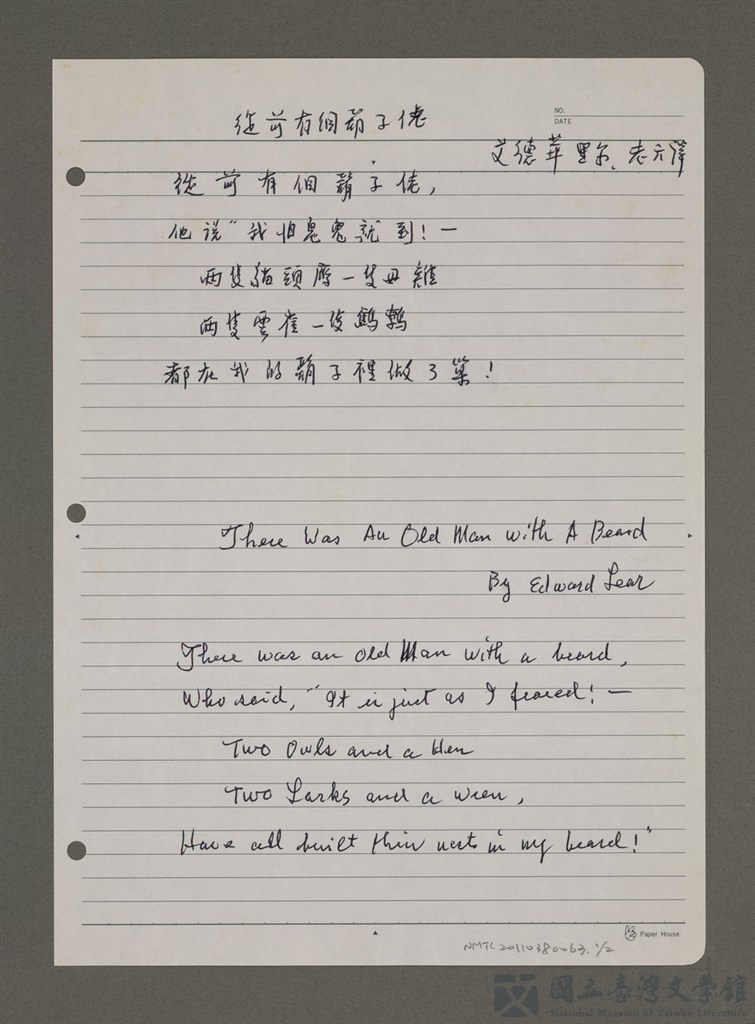 從前有個鬍子佬
NO.
DATE
艾德華里尔、
從前有個鬍子佬，
他說“我怕鬼鬼就到！—
兩隻貓頭鷹一隻母雞
兩隻雲雀一隻鷦鷯
都在我的鬍子裡做了巢！
There Was An Old Man With A Beard
By Edward Lear
There was an old Man with a beard,
Who said, "It is just as I feared! —
Two Owls and a Hen
Two Larks and a wren,
Have all built their nests in my beard!"
Paper House
NMTL20110380063.1/2
國立臺灣文學館
National Museum of Taiwan Literature